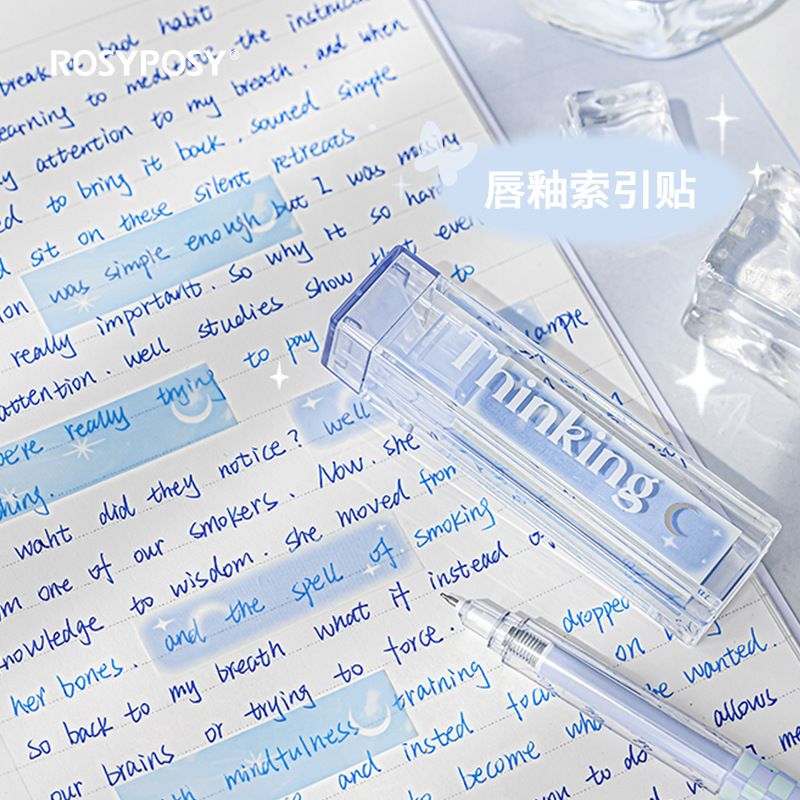 ROSYPOSY®
唇釉索引贴
Thinking
break a bad habit
learning to meditate the instruction
attention to my breath. and when
to bring it back. souned simple
sit on these silent retreats
was simple enough but I was missing
really important. So why it so hard
attention. well studies show that even
we're really trying to pay to
example
well
waht did they notice? Now. she
one of our smokers. she moved from
knowledge to wisdom.
her bones. and the spell of smoking
So back to my breath what if instead of
our brains or trying to force.
dropped
mindfulness training
and insted
on
be wanted.
to become
allows
you to do